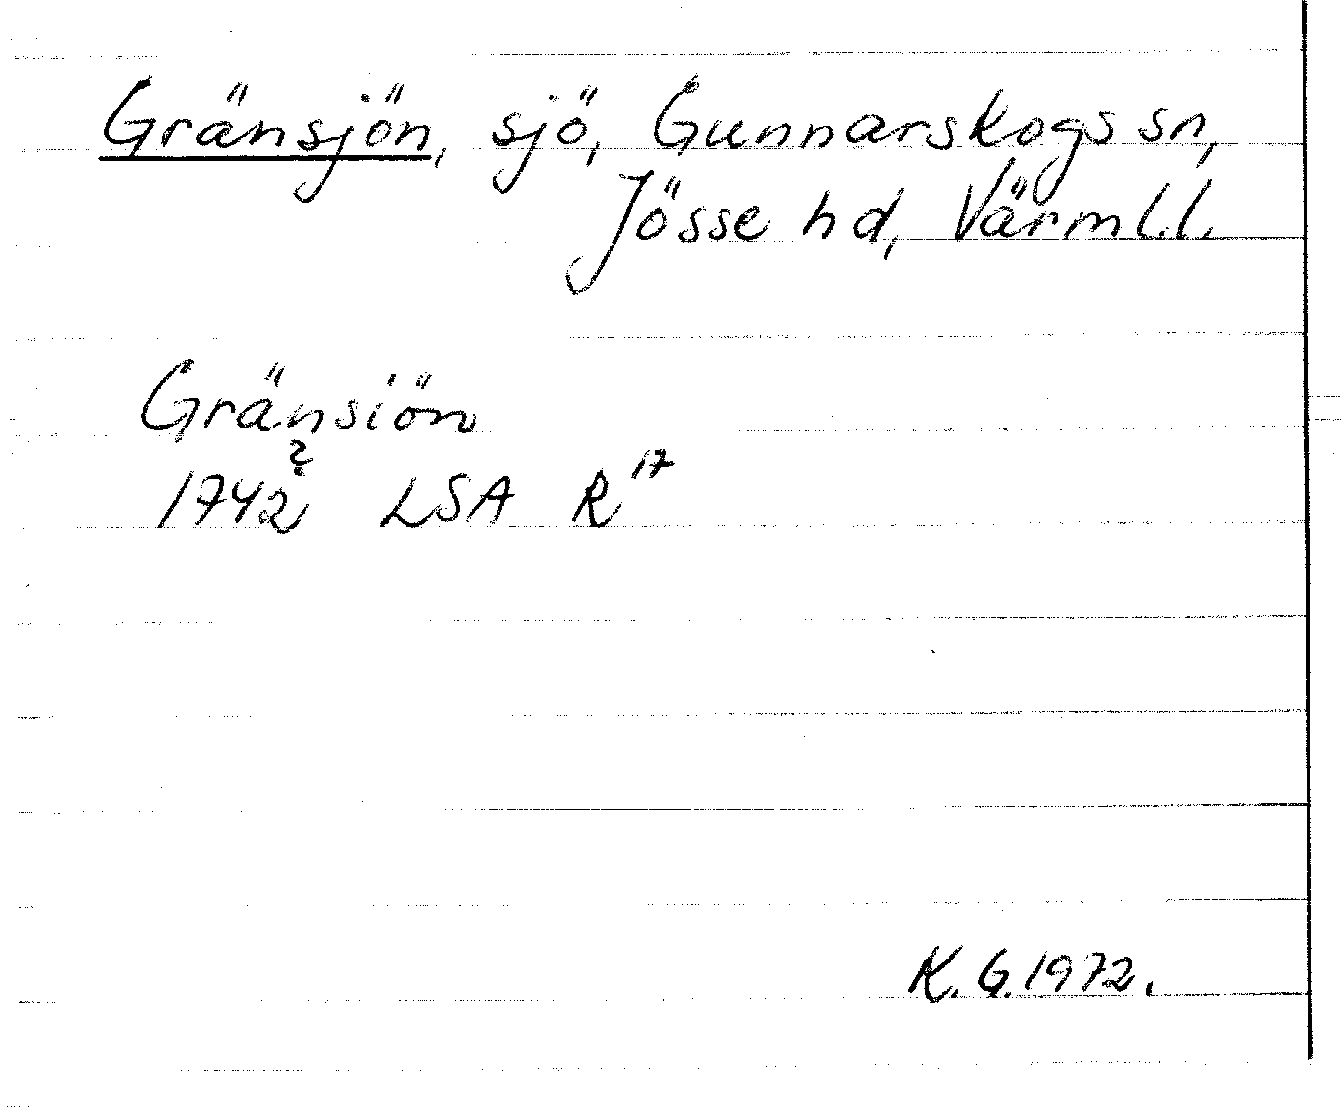 Gränsjön, sjö, Gunnarskogs sn,
Jösse hd, Värml.l.
Gränsiön
?
1742 LSA R17
K.G.1972.